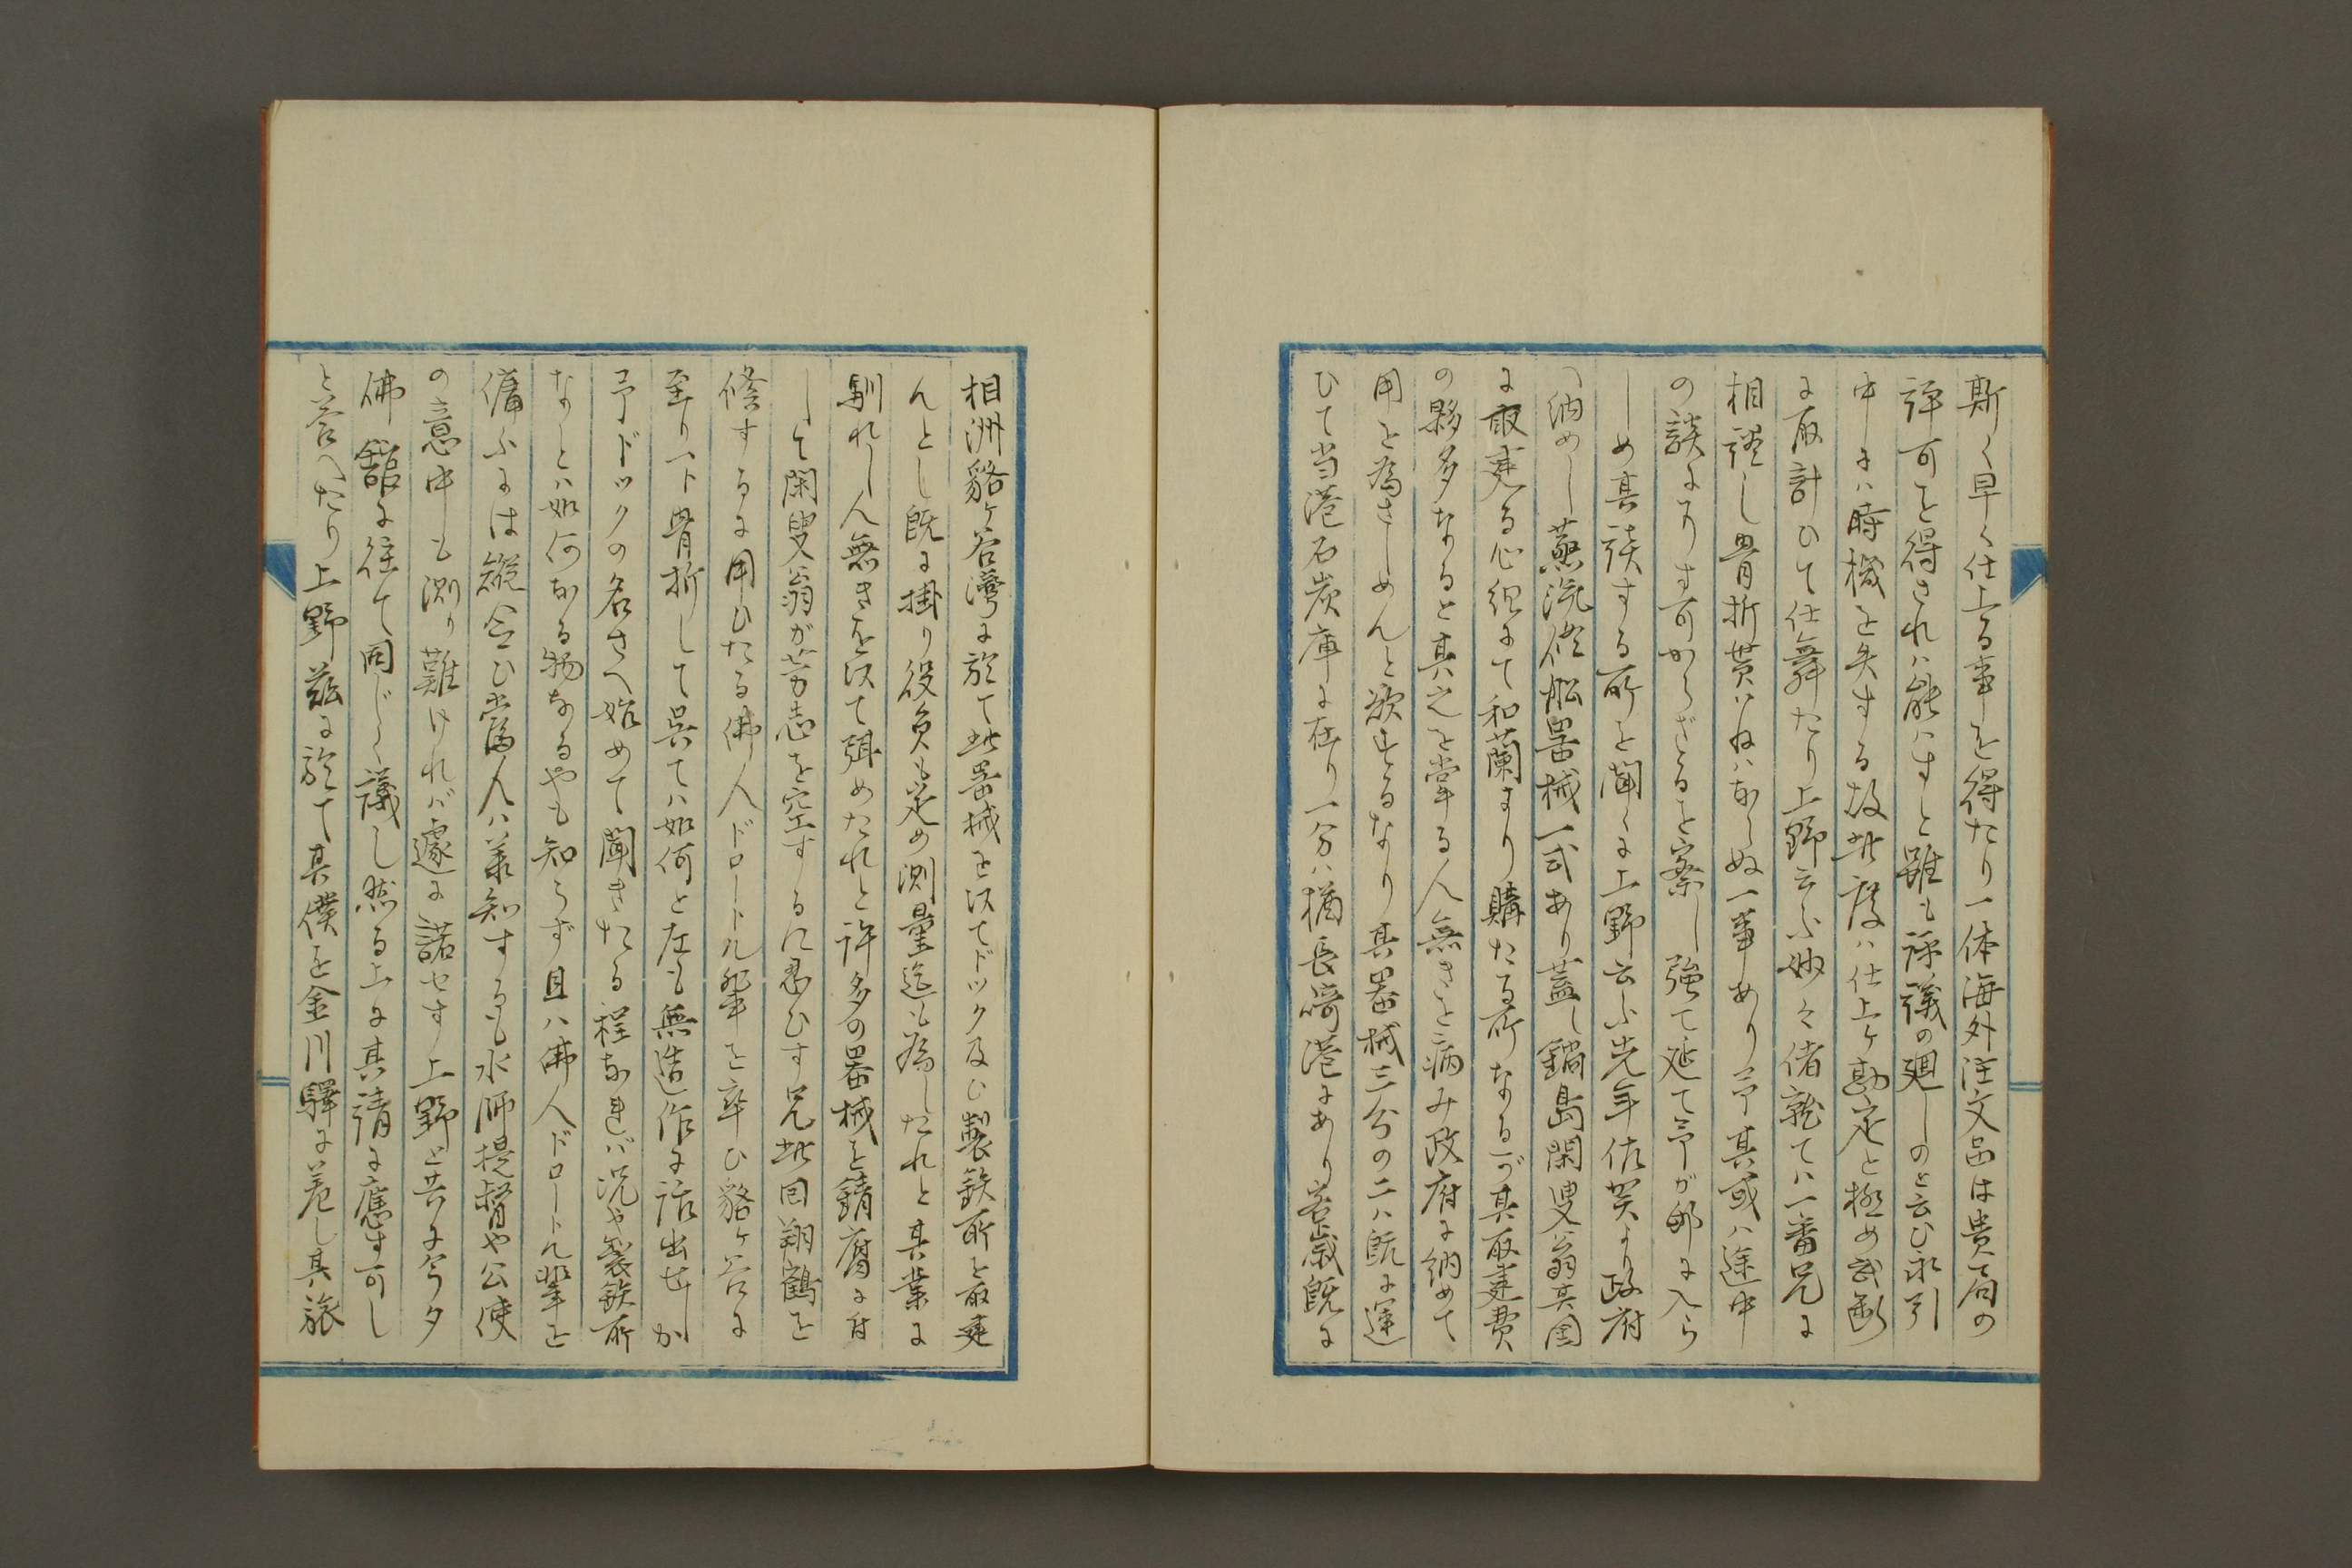 斯く早く仕上る事を得たり一体海外注文品は貴局の
評可を得されハ能ハすと雖も評議の廻しのと云ひ永引
中にハ時機を失する故此度ハ仕上ケ勘定と極め武断
に取計ひて仕舞たり上野云ふ妙々偖就てハ一番兄に
相譚し骨折貰ハねハならぬ一事あり予其或ハ途中
の談になす可からざるを察し強て延て予が邸に入ら
しめ其談する所を聞くに上野云ふ先年佐賀より政府
へ納めし蒸汽修船器械一式あり蓋し鍋島閑叟翁其国
に取建る心組にて和蘭より購たる所なるが其取建費
の夥多なると其之を掌る人無きとに病み政府に納めて
用を為さしめんと欲するなり其器械三分の二ハ既に運
ひて当港石炭庫に在り一分ハ猶長崎港にあり客歳既に
相洲貉ヶ谷湾に於て此器械を以てドック及ひ製鉄所を取建
んとし既に掛り役員も定め測量迄も為したれと其業に
馴れし人無きを以て弭めたれと許多の器械を錆腐に付
しては閑叟翁が芳志を空するに忍ひす兄此回翔鶴を
修するに用ひたる佛人ドロートル輩を率ひ貉ヶ谷に
至り一ト骨折して呉てハ如何と左も無造作に話出せしか
予ドックの名さへ始めて聞きたる程なれバ況や製鉄所
なとハ如何なる物なるやも知らず且ハ佛人ドロートル輩を
傭ふには縦令ひ當人ハ承知するも水師提督や公使
の意中も測り難けれバ遽に諾せす上野と共に今夕
佛舘に往て同じく議し然る上に其請に應す可し
と答へたり上野茲に於て其僕を金川驛に差し其旅